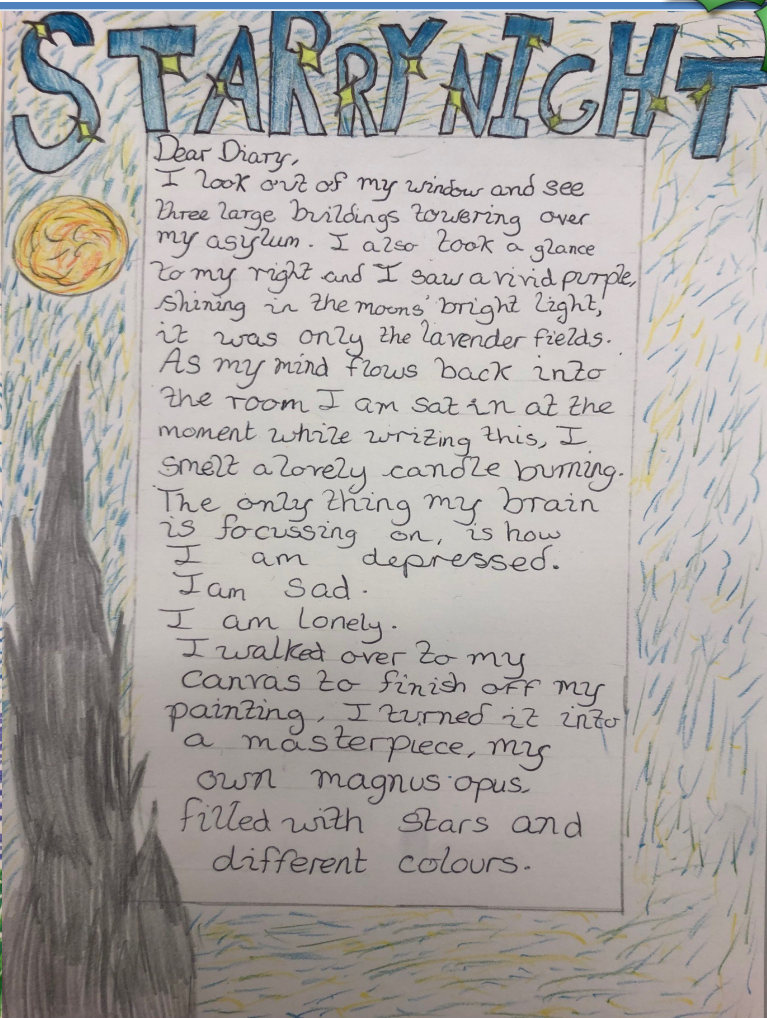 STARRY NIGHT
Dear Diary,
I look out of my window and see
three large buildings towering over
my asylum. I also took a glance
to my right and I saw a vivid purple,
shining in the moons' bright light,
it was only the lavender fields.
As my mind flows back into
the room I am sat in at the
moment while writing this, I
smelt a lovely candle burning.
The only thing my brain
is focussing on, is how
I am depressed.
I am sad.
I am lonely.
I walked over to my
canvas to finish off my
painting, I turned it into
a masterpiece, my
own magnus opus,
filled with stars and
different colours.